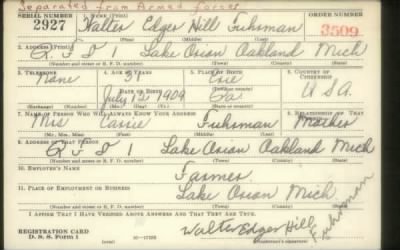 Separated from Armed Forces
SERIAL NUMBER 1. NAME (Print) ORDER NUMBER
2927 Walter Edger Hill Fuhrman 3509
(First) (Middle) (Last)
2. ADDRESS (Print)
R F D 1 Lake Orion Oakland Mich
(Number and street or R. F. D. number) (Town) (County) (State)
3. TELEPHONE 4. AGE IN YEARS 5. PLACE OF BIRTH 6. COUNTRY OF CITIZENSHIP
None 31 Erie
DATE OF BIRTH
July 12 1909 Pa. U S A
(Exchange) (Number) (Mo.) (Day) (Yr.) (State or country)
7. NAME OF PERSON WHO WILL ALWAYS KNOW YOUR ADDRESS 8. RELATIONSHIP OF THAT PERSON
Mrs Cassie Fuhrman Mother
(Mr., Mrs., Miss) (First) (Middle) (Last)
9. ADDRESS OF THAT PERSON
R F D 1 Lake Orion Oakland Mich
(Number and street or R. F. D. number) (Town) (County) (State)
10. EMPLOYER'S NAME
Farmer
11. PLACE OF EMPLOYMENT OR BUSINESS
Lake Orion Mich
(Number and street or R. F. D. number) (Town) (County) (State)
I AFFIRM THAT I HAVE VERIFIED ABOVE ANSWERS AND THAT THEY ARE TRUE.
REGISTRATION CARD
D. S. S. Form 1
Walter Edger Hill Fuhrman
(Registrant's signature)